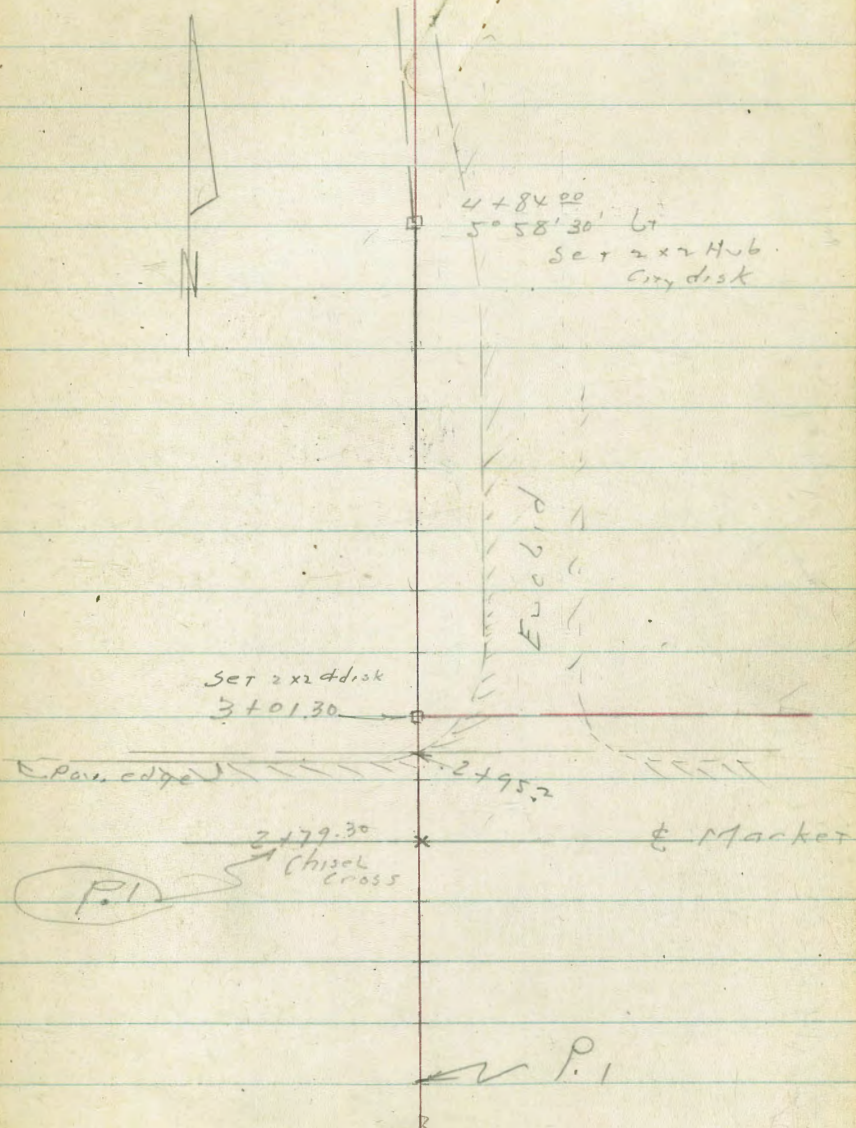 4 + 84 00
5° 58' 30' Lt
Set 2 x 2 Hub
City disk
N
Euclid
Set 2 x 2 & disk
3 + 01.30
Pav. edge
2 + 95.2
2 + 79.30
Chisel
Cross
℄ Market
P.1
P.1